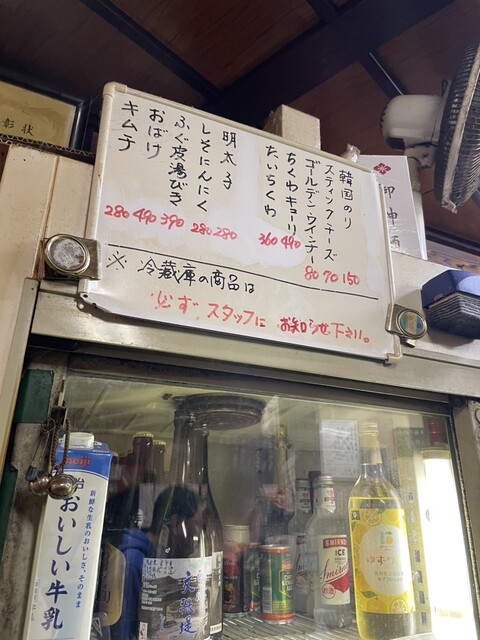 韓国のり
スティックチーズ
ゴールデンウインナー
ちくわキューリ
たいちくわ
明太子
しそにんにく
ふぐ皮湯びき
おばけ
キムチ
280 490 390 280 280 360 490 80 70 150
※ 冷蔵庫の商品は
必ず スタッフに お知らせ下さい。
彰状
御神酒
meiji
おいしい牛乳
新鮮な生乳のおいしさ、そのまま
SMIRNOFF
ICE
ゆず